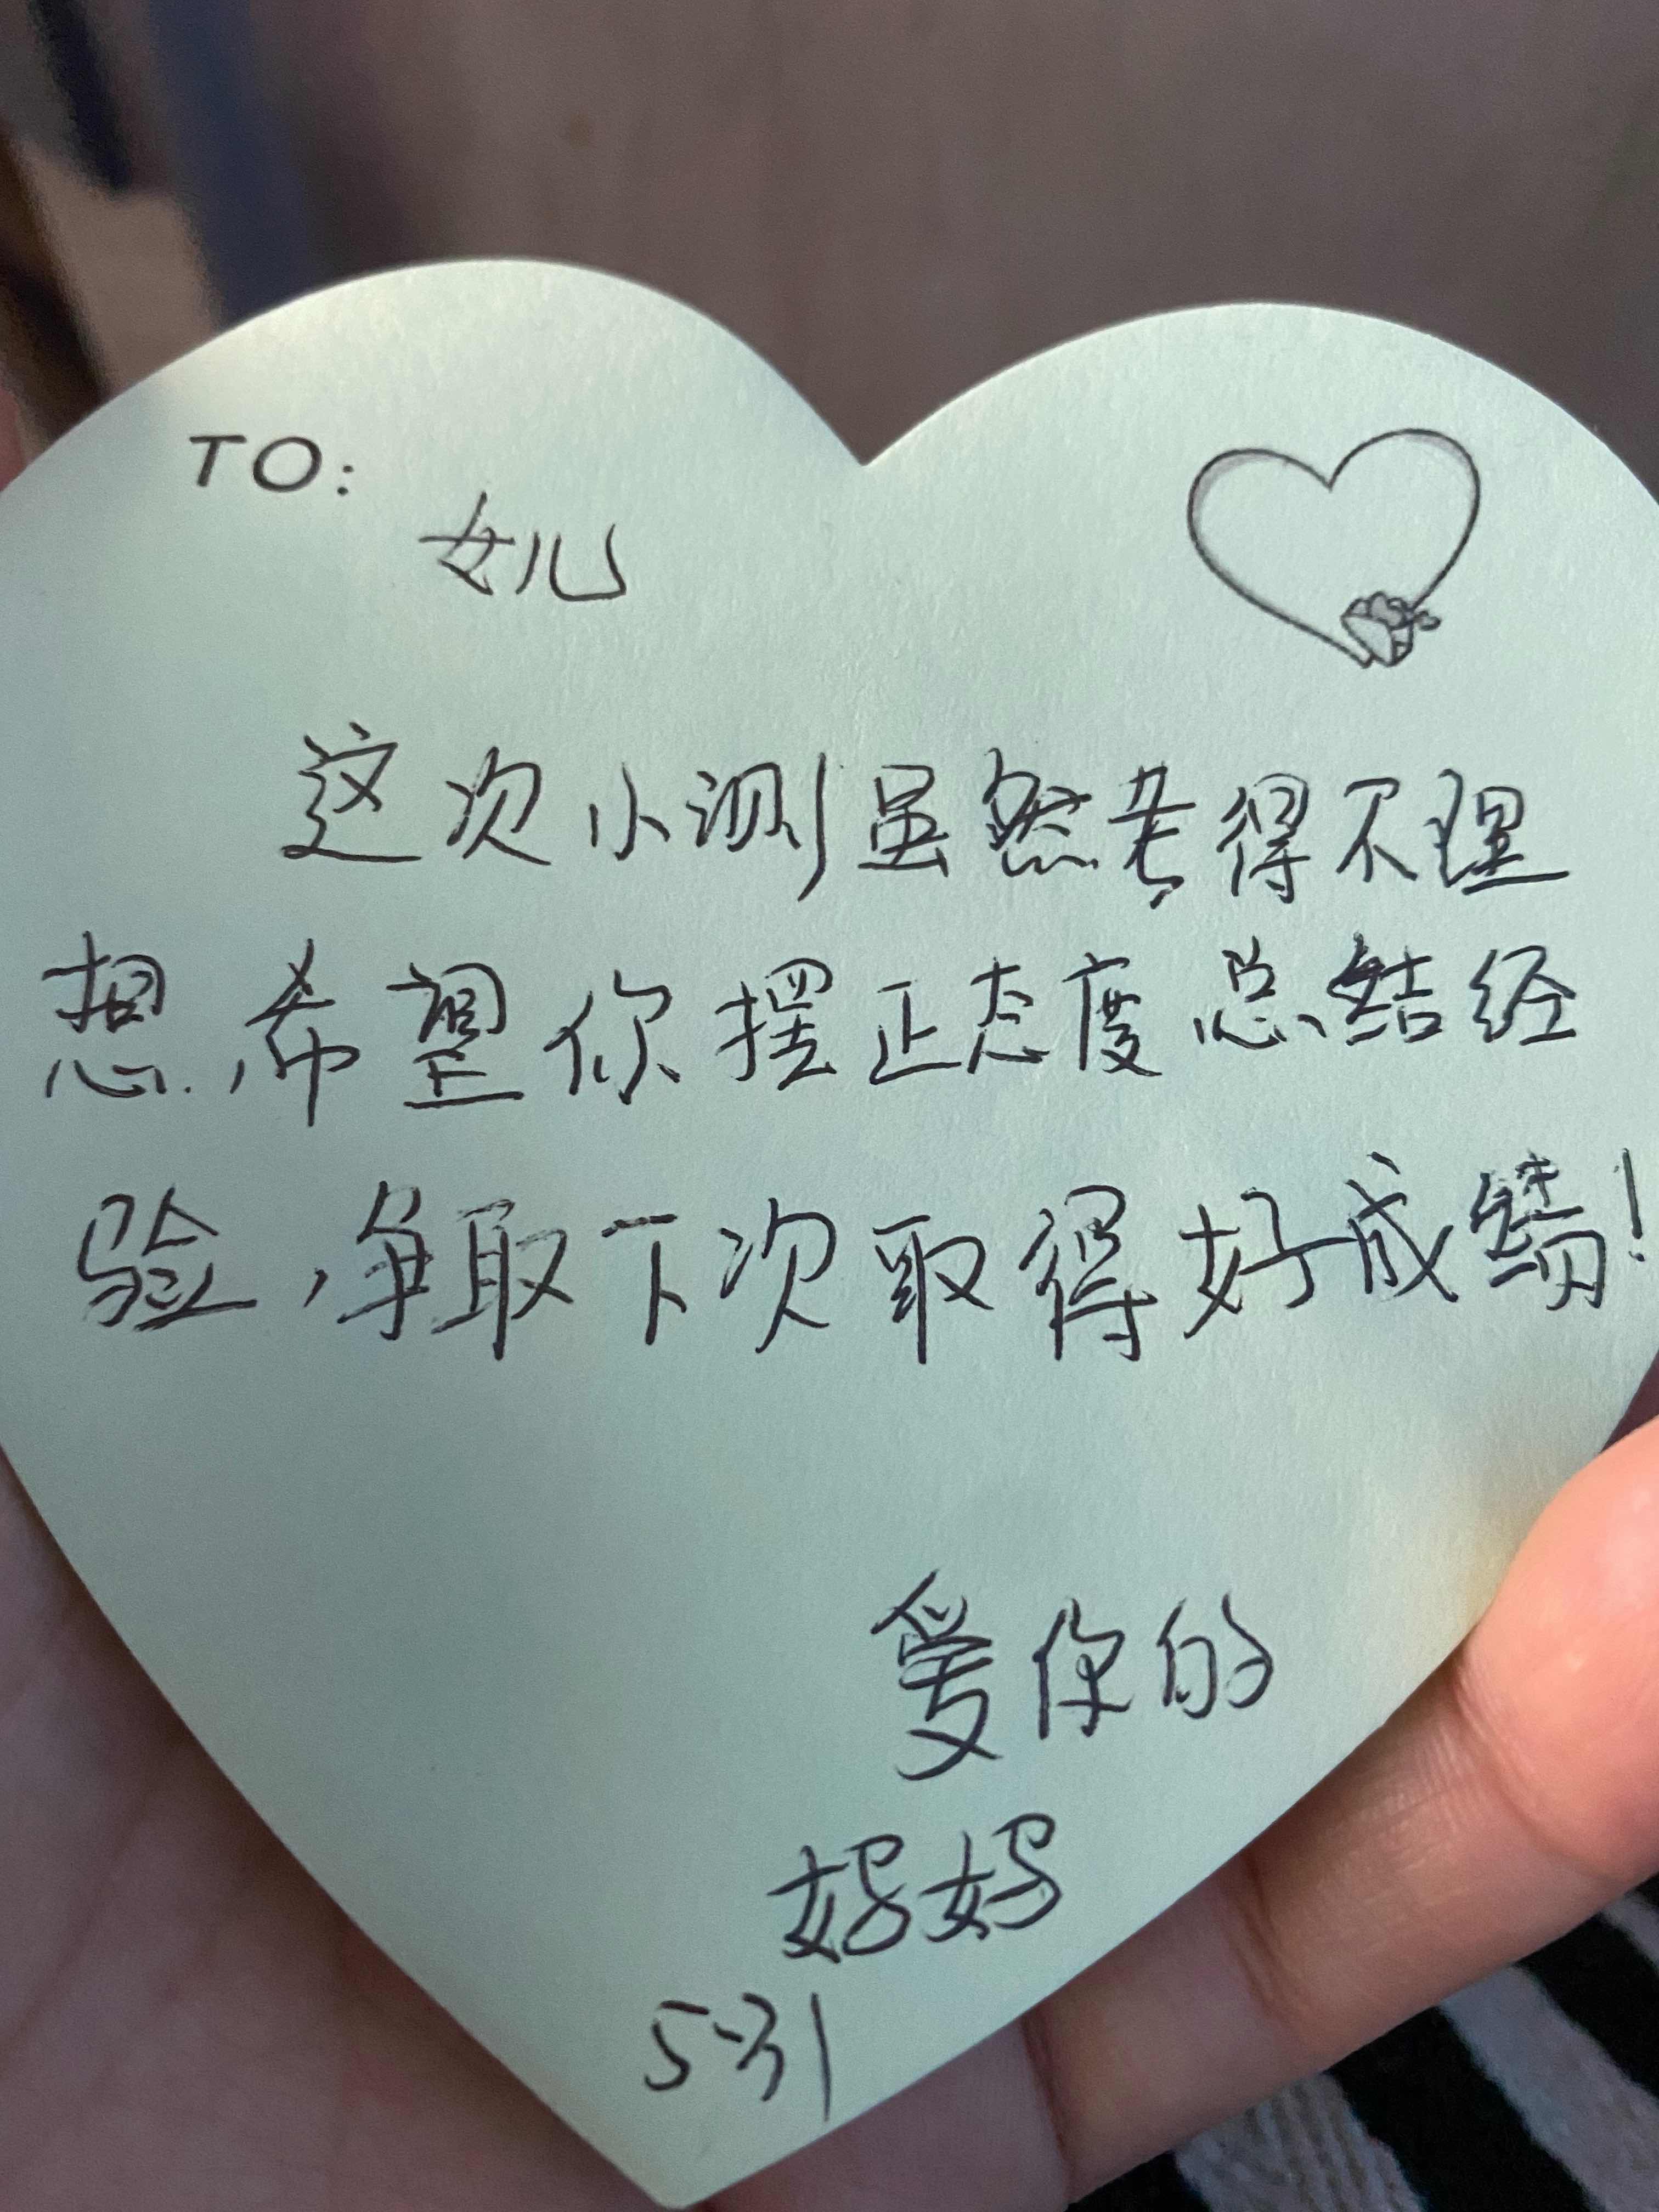 TO:
女儿
这次小测虽然考得不理
想,希望你摆正态度总结经
验,争取下次取得好成绩!
爱你的
妈妈
5-31